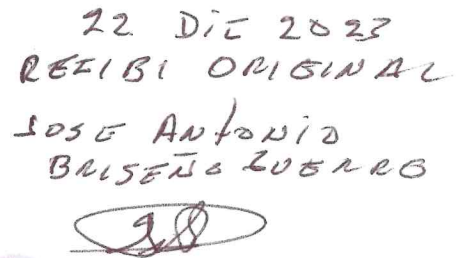 22 DIC 2023
RECIBI ORIGINAL
JOSE ANTONIO
BRISEÑO